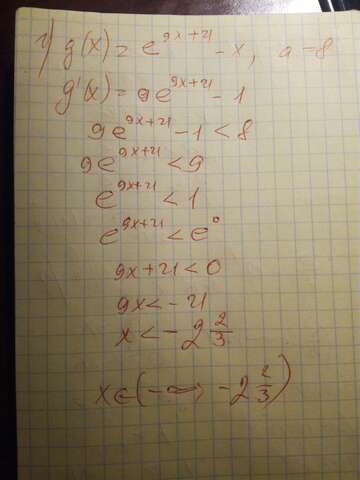 1) g(x) = e^{9x+21} - x, a = 8
g'(x) = 9e^{9x+21} - 1
9e^{9x+21} - 1 < 8
9e^{9x+21} < 9
e^{9x+21} < 1
e^{9x+21} < e^0
9x + 21 < 0
9x < -21
x < -2 2/3
x ∈ (-∞; -2 2/3)